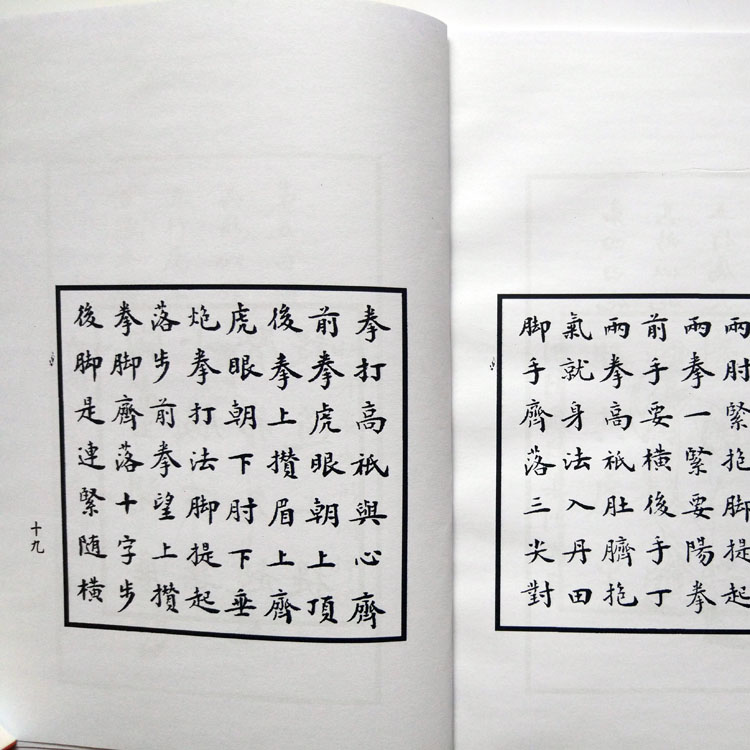 兩肘緊抱脚提起
兩拳一緊要陽拳
前手要橫後手丁
兩拳高祇肚臍抱
氣就身法入丹田
脚手齊落三尖對
拳打高祇與心齊
前拳虎眼朝上頂
後拳上攢眉上齊
虎眼朝下肘下垂
炮拳打法脚提起
落步前拳望上攢
拳脚齊落十字步
後脚是連緊随橫
十九